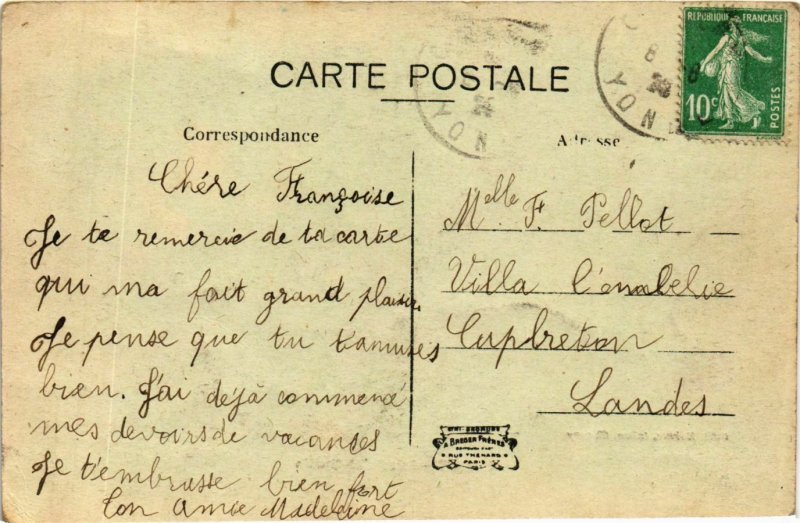 CARTE POSTALE
RÉPUBLIQUE FRANÇAISE
10c
POSTES
Correspondance
Adresse
Chére Françoise
Je te remercie de ta carte
qui ma fait grand plaisir.
Je pense que tu t'amuses
bien. J'ai déjà commencé
mes devoirs de vacances
Je t'embrasse bien fort
Ton amie Madeleine
Melle F. Pellot
Villa
Capbreton
Landes
BREGER FRÈRES
RUE THÉNARD
PARIS